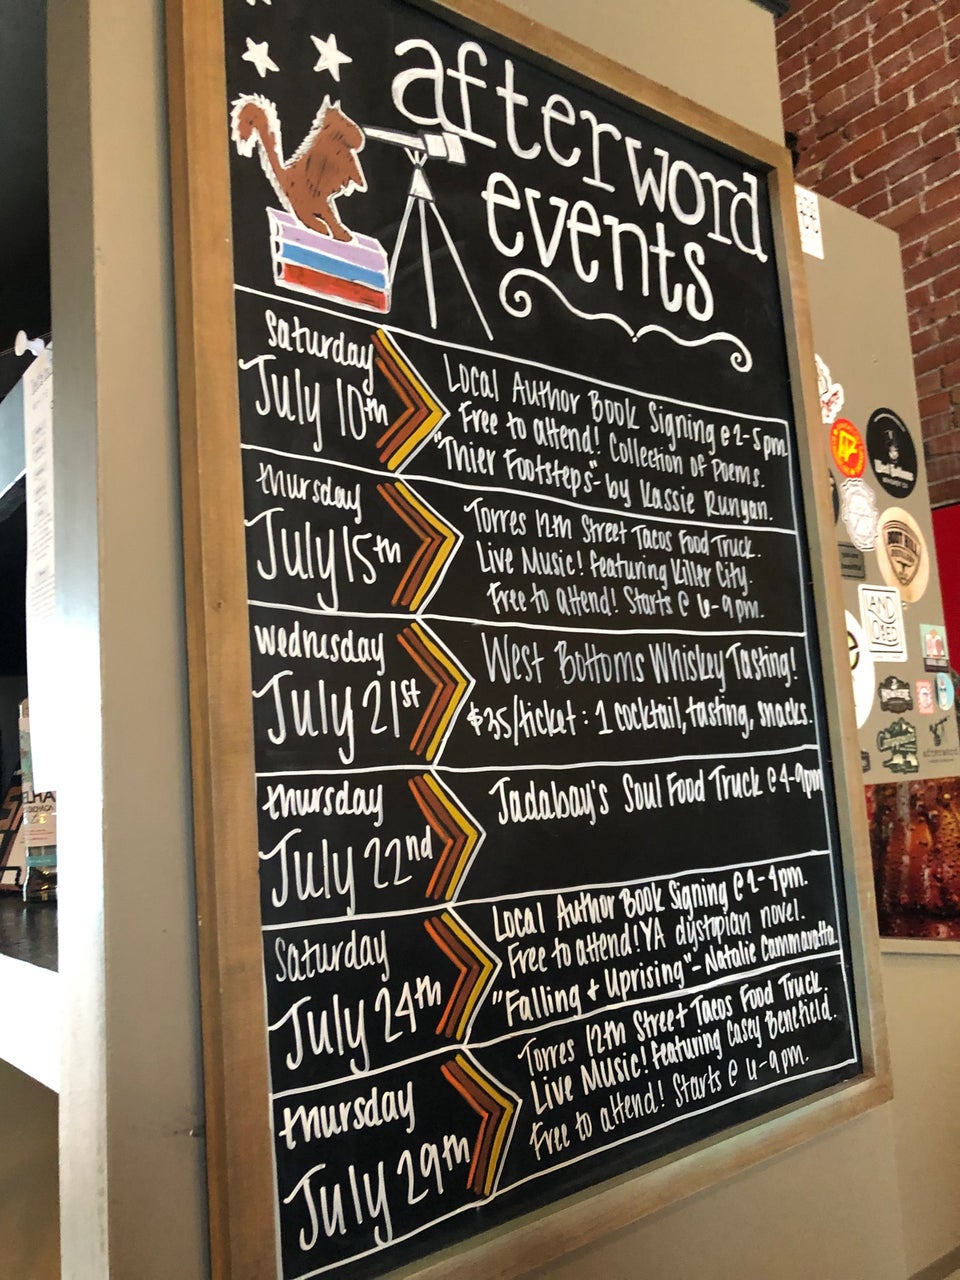 afterword
events
saturday
July 10th
Local Author Book Signing @ 2-5pm
Free to attend! Collection of Poems.
"Thier Footsteps"- by Kassie Runyan.
thursday
July 15th
Torres 12th Street Tacos Food Truck.
Live Music! Featuring Killer City.
Free to attend! Starts @ 6-9pm.
wednesday
July 21st
West Bottoms Whiskey Tasting!
$35/ticket: 1 cocktail, tasting, snacks.
thursday
July 22nd
Jadabay's Soul Food Truck @ 4-9pm
saturday
July 24th
Local Author Book Signing @ 2-4pm.
Free to attend! YA dystopian novel.
"Falling + Uprising"- Natalie Cammaratta
thursday
July 29th
Torres 12th Street Tacos Food Truck.
Live Music! Featuring Casey Benefield.
Free to attend! Starts @ 6-9pm.